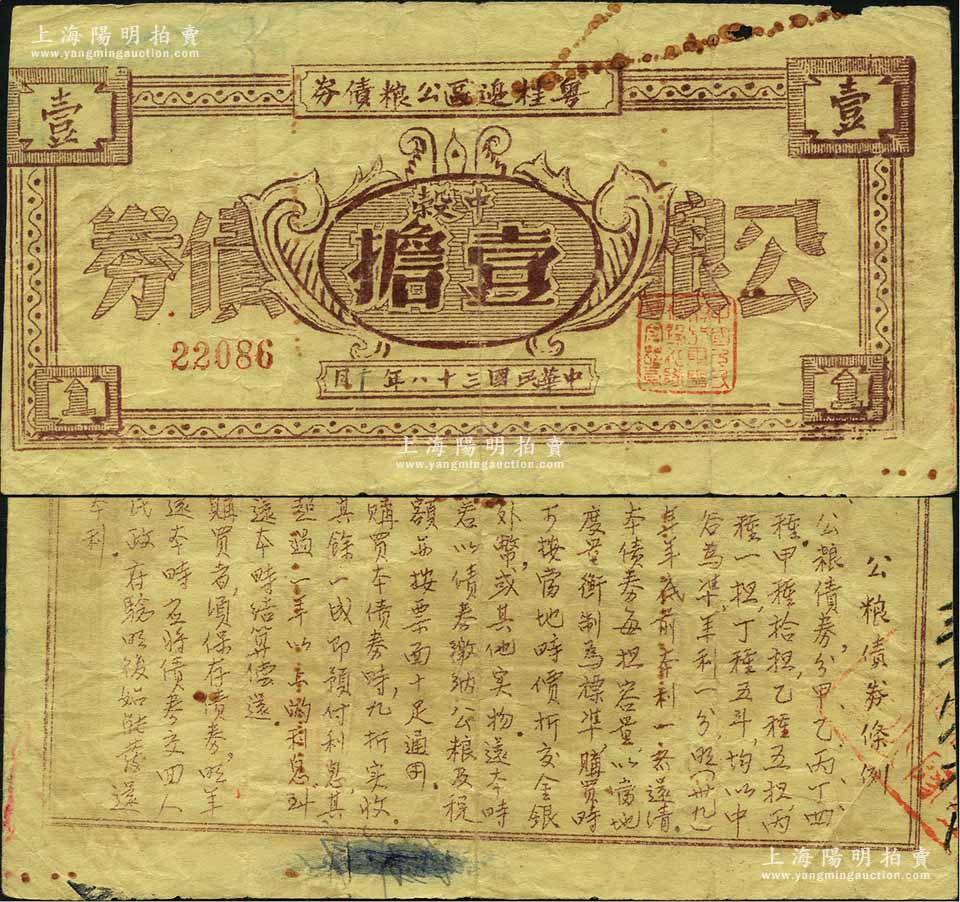 上海陽明拍賣
www.yangmingauction.com
粤桂邊區公粮債券
壹
壹
公粮債券
中榖
壹擔
22086
中華民國三十八年 月
壹
壹
上海陽明拍賣
www.yangmingauction.com
公粮債券條例
公粮債券，分甲、乙、丙、丁四
種，甲種拾担，乙種五担，丙
種一担，丁種五斗，均以中
谷為準，年利一分，
年年 前本利一
本債券每担容量，以當地
度量衡制為標準，購買時
可按當地時價折交金銀
外幣，或其他实物，还本時
若以債券繳納公粮及税
額 按票面十足通用
購買本債券時，九折实收。
其餘一成即預付利息，其
超過一年以 的利息，到
还本時結算償还。
購買者，須保存債券，
还本時 將債券交
民政府驗明後始能發還
本利.
上海陽明拍賣
www.yangmingauction.com